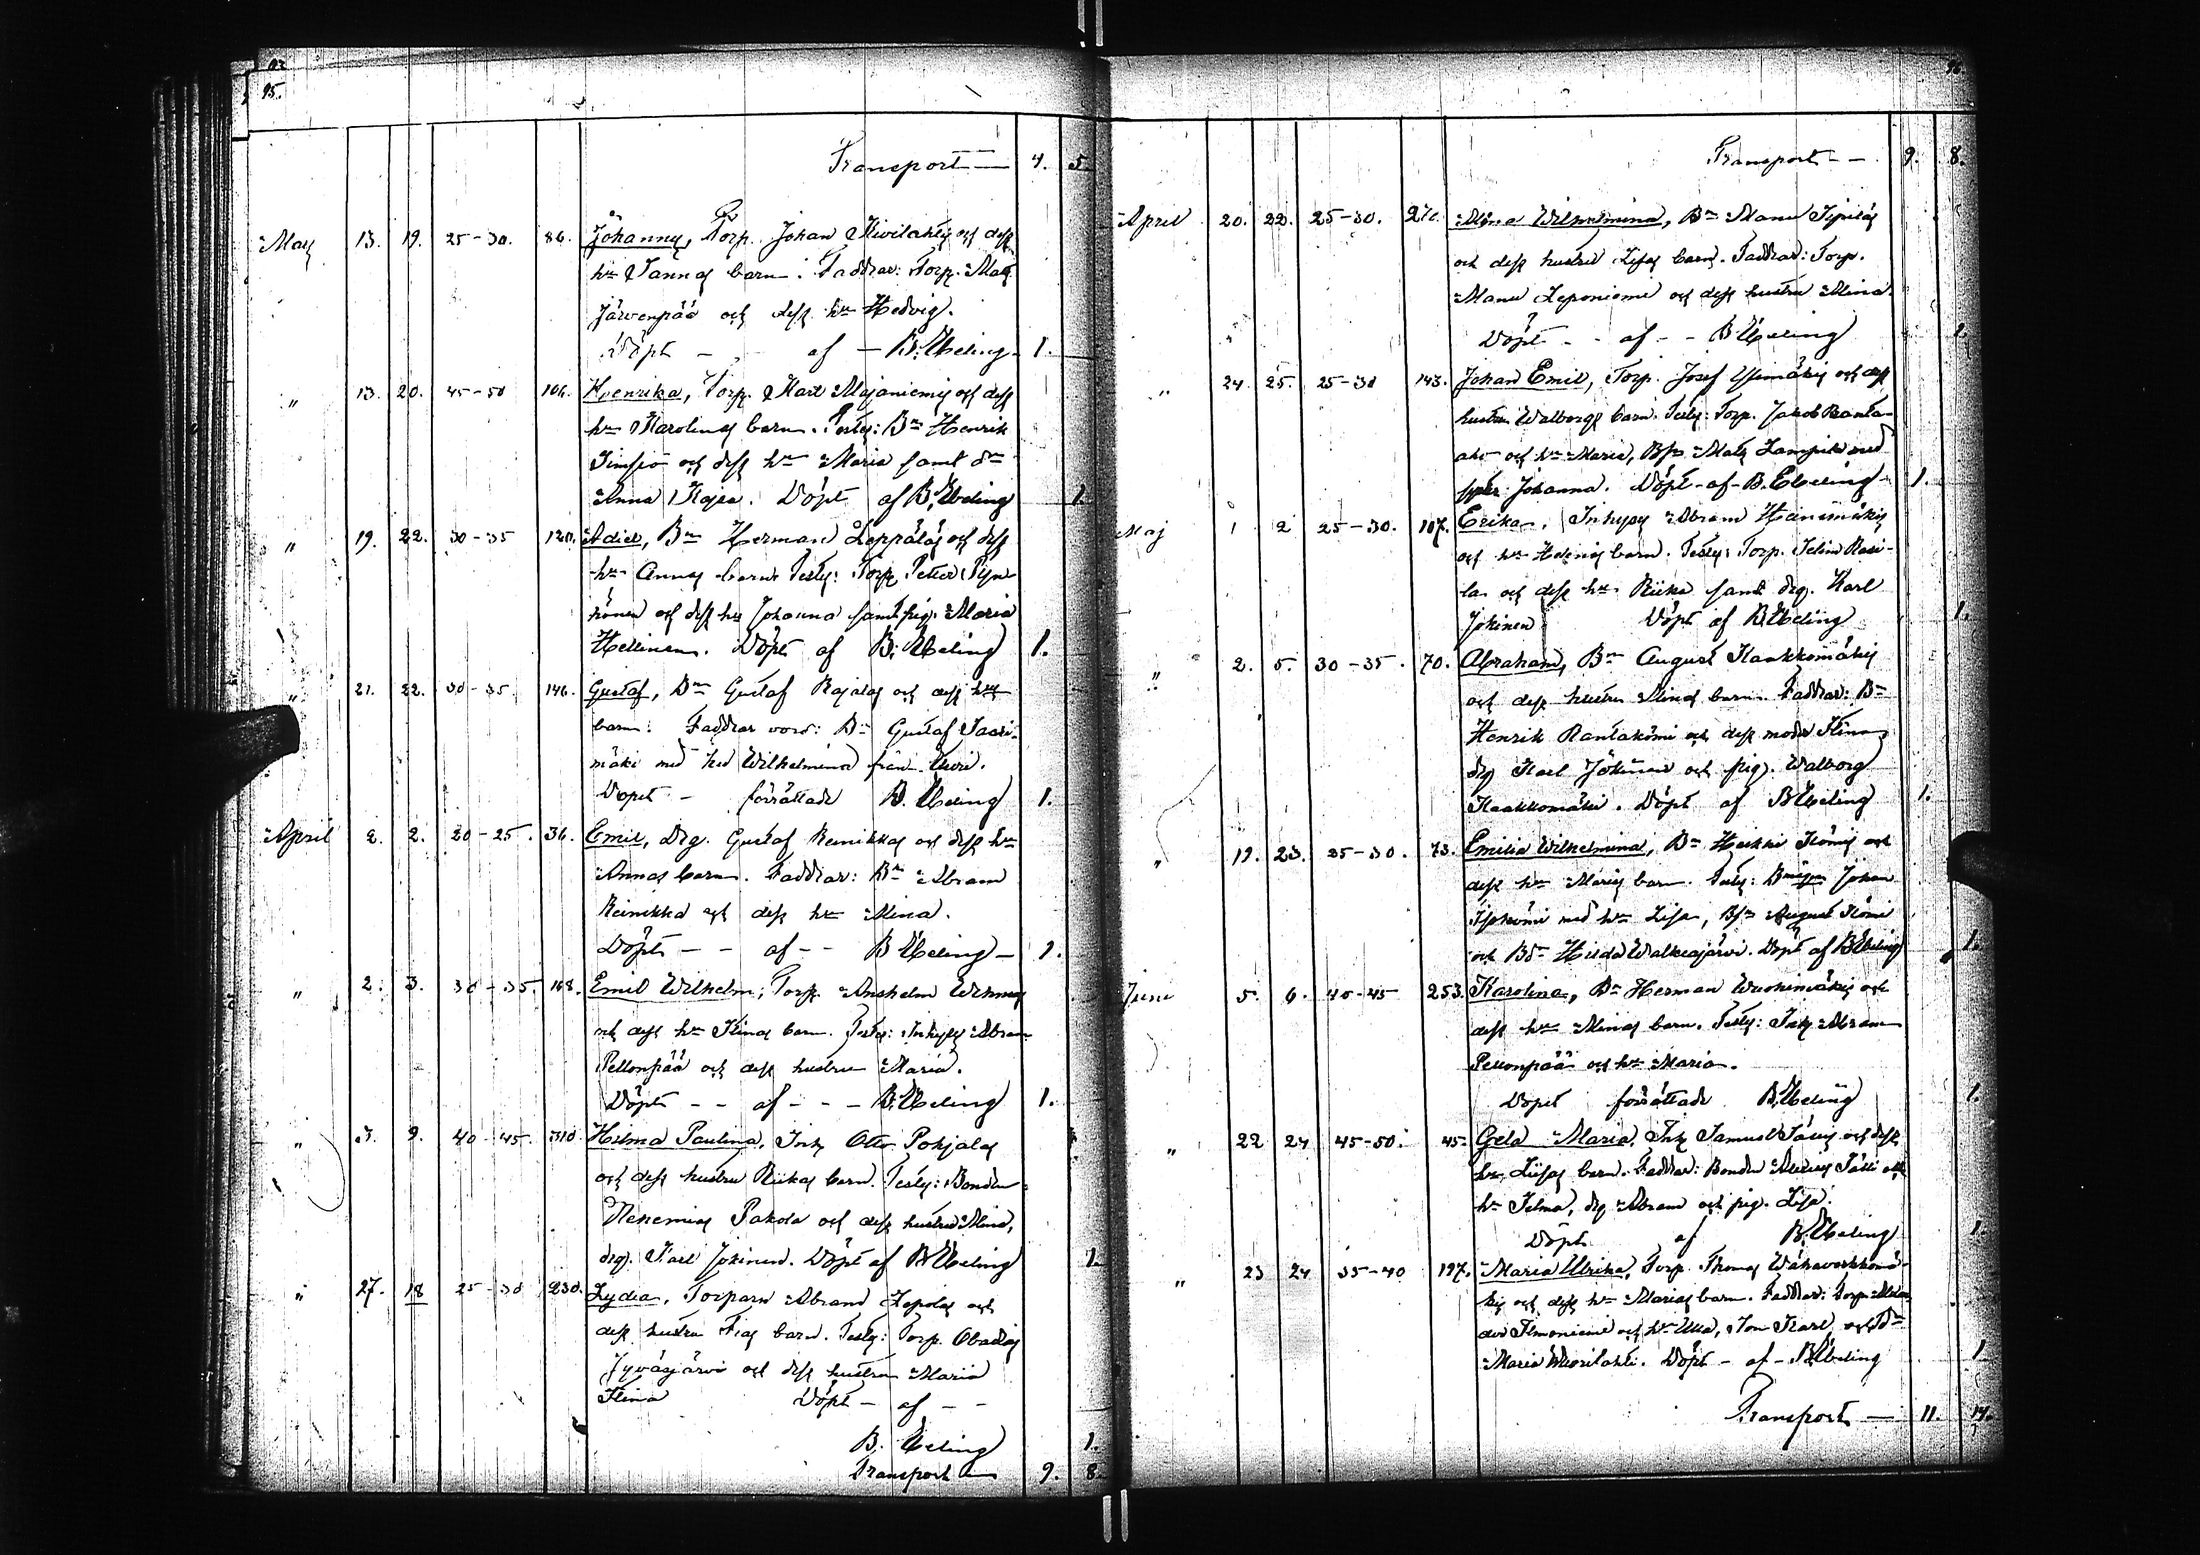 95.
Transport — 4. 5.
Mars 13. 19. 25-30. 86. Johannes, Torp. Johan Kivilahtis och dess
hu Sannas barn. Faddrar: Torp. Matts
Järvenpää och dess hu Hedvig.
Döpt - af - B. Ebeling 1.
" 13. 20. 45-50 106. Henrika, Torp. Karl Majaniemis och dess
hu Karolinas barn. Testes: Bn Henrik
och dess hu Maria samt dn
Anna Kajsa. Döpt af B. Ebeling 1.
" 19. 22. 30-35 120. Adiel, Bn Herman Leppäläs och dess
hu Annas barn Testes: Torp. Petter Pyn-
nönen och dess hu Johanna samt pig. Maria
Hellinen. Döpt af B. Ebeling 1.
" 21. 22. 30-35. 146. Gustaf, Bn Gustaf Rajalas och dess hus
barn. Faddrar voro: Bn Gustaf Saari-
mäki med hu Wilhelmina från
Dopet - förrättade B. Ebeling 1.
April 2. 2. 20-25. 36. Emil, Drg. Gustaf Reinikkas och dess hu
Annas barn. Faddrar: Bn Abram
Reinikka och dess hu Mina.
Döpt - - af - - B Ebeling - 1.
" 2. 3. 30-35. 168. Emil Wilhelm, Torp. Anshelm
och dess hu Stinas barn. Testes: Inhyses Abram
Pellonpää och dess hustru Maria.
Döpt - - af - - - B. Ebeling 1.
" 3. 9. 40-45. 310. Hilma Paulina, Inh. Otto Pohjalas
och dess hustru Riikas barn. Testes: Bonden
Nehemias Pakola och dess hustru Mina,
drg. Karl Jokinen. Döpt af B Ebeling 1.
" 27. 18 25-30 230. Lydia, Torparn Abram Lepolas och
dess hustru Fias barn. Testes: Torp. Obadias
Jyväsjärvi och dess hustru Maria
Stina Döpt - af - -
B. Ebeling 1.
Transport — 9. 8.
96.
Transport - - 9. 8.
April 20. 22. 25-30. 270. Alma Wilhelmina, Bn Manu
och dess hustru Lisas barn. Faddrar: Torp.
Manu Leponiemi och dess hustru Mina.
Döpt - - af - - B Ebeling 1.
" 24. 25. 25-30 143. Johan Emil, Torp. Josef och dess
hustru Walborgs barn. Testes: Torp. Jakob Ranta-
aho och hu Maria, Matts med
Johanna. Döpt - af - B. Ebeling 1.
Maj 1 2 25-30. 107. Erika, Inhyses Abram Heinimäkis
och hu barn. Testes: Torp. Selim Rasi-
la och dess hu Riika samt drg. Karl
Jokinen Döpt af B. Ebeling 1.
" 2. 5. 30-35. 70. Abraham, Bn August Kaakkomäkis
och dess hustru Minas barn. Faddrar: Bn
Henrik Rantakömi och dess moder Stina,
drg Karl Jokinen och pig. Walborg
Kaakkomäki. Döpt af B Ebeling 1.
" 19. 23. 25-30. 73. Emilia Wilhelmina, Bn Heikki Kömis och
dess hu Marias barn. Testes: Johan
med hu Lisa, August Kömi
och Hilda Walkeajärvi. Döpt af B Ebeling 1.
Juni 5. 6. 40-45 253. Karolina, Bn Herman Wuorimäkis och
dess hu Minas barn. Testes: Inh. Abram
Pellonpää och hu Maria.
Dopet förrättade B. Ebeling 1.
" 22 24 45-50. 45. Maria, Inh. Samuel och dess
hu Lisas barn. Faddrar: Bonden och
hu Selma, drg Abram och pig. Lisa.
Döpt af B. Ebeling 1.
" 23 24 35-40 197. Maria Ulrika, Torp. Thomas
kis och dess hu Marias barn. Faddrar: Torp.
och hu Ulla, Son Karl och
Maria Wuorilahti. Döpt - af - B Ebeling 1.
Transport — 11. 14.